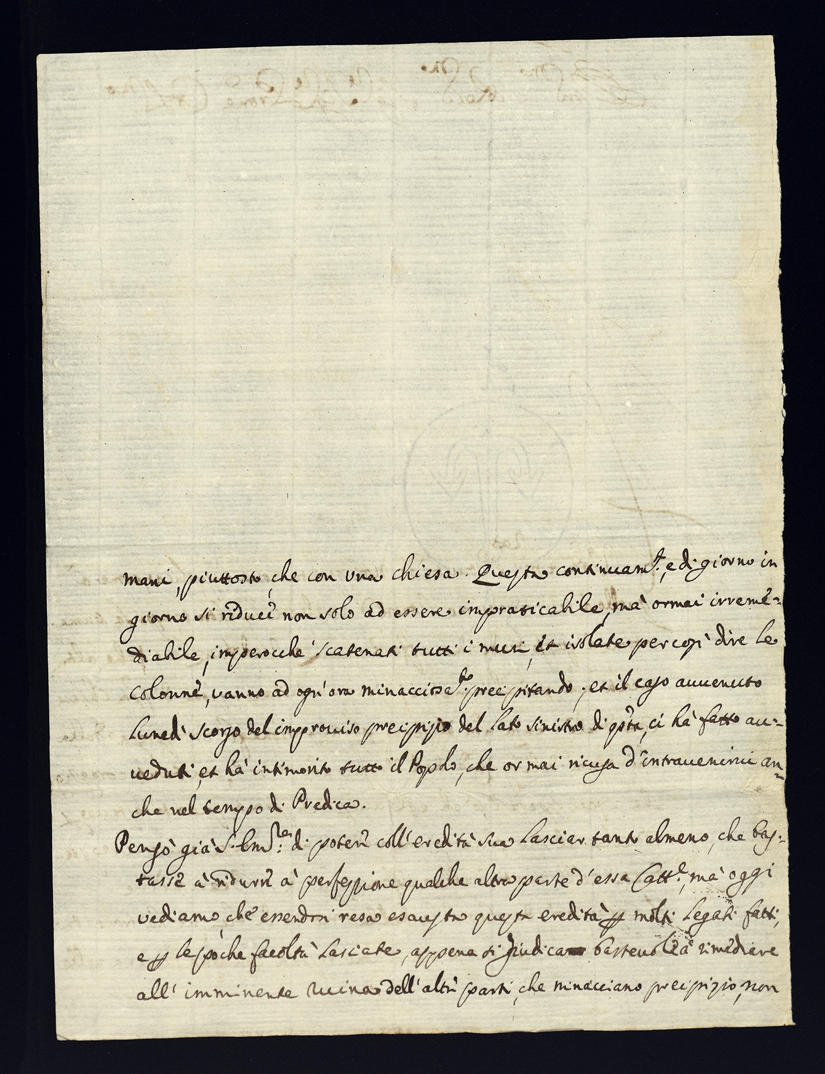 mani, piuttosto, che con una chiesa. Questa continuam.te, e di giorno in
giorno si riduce non solo ad essere impraticabile, mà ormai irreme=
diabile, imperocchè scatenati tutti i muri, et isolate per così dire le
colonne, vanno ad ogn'ora minacciosa.te precipitando; et il caso avvenuto
Lunedì scorso del improviso precipizio del Lato sinistro di q.sta, ci hà fatto av=
veduti, et hà intimorito tutto il Popolo, che or mai ricusa d'intravenirvi an=
che nel tempo di Predica.
Pensò già S. Em.za di poter coll'eredità sua Lasciar tanto almeno, che bas=
tasse à ridurre à perfezzione qualche altra parte d'essa Catt.le, mà oggi
vediamo che essendosi resa esausta questa eredità molti Legati fatti,
e le poche facoltà Lasciate, appena si giudica bastevole à rimediare
all'imminente ruina dell'altri parti, che minacciano precipizio, non